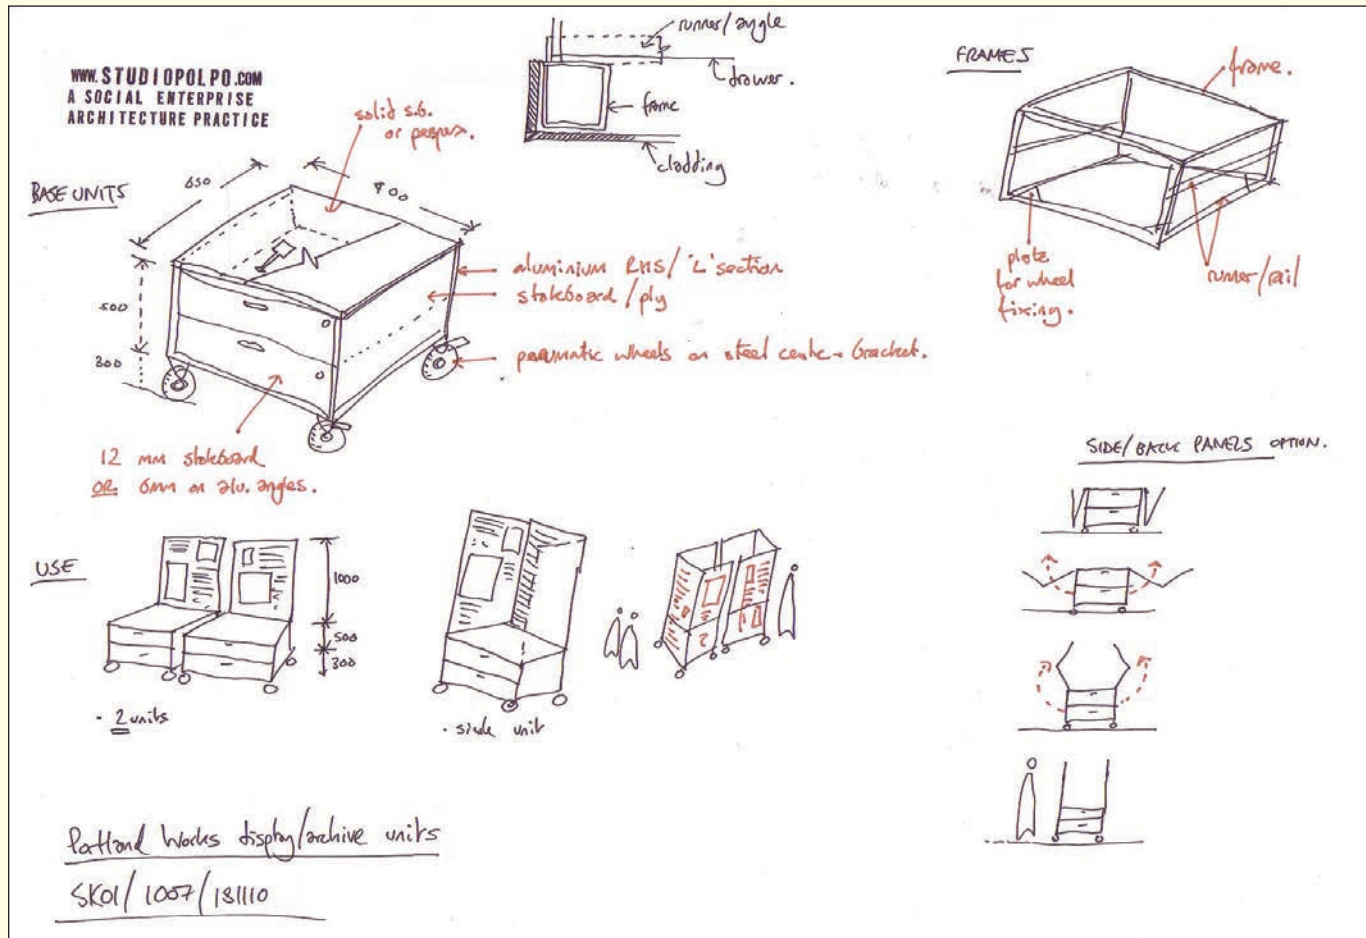 www.STUDIOPOLPO.COM
A SOCIAL ENTERPRISE
ARCHITECTURE PRACTICE
runner/angle
drawer.
frame
cladding
FRAMES
frame.
plate
for wheel
fixing.
runner/rail
BASE UNITS
solid s.b.
or perspex.
650
900
500
300
aluminium RHS/'L' section
stokboard/ply
pneumatic wheels on steel bracket.
12 mm stokboard
OR 6mm on alu. angles.
SIDE/BACK PANELS OPTION.
USE
1000
500
300
· 2 units
· single unit
Portland Works display/archive units
SK01/1007/181110